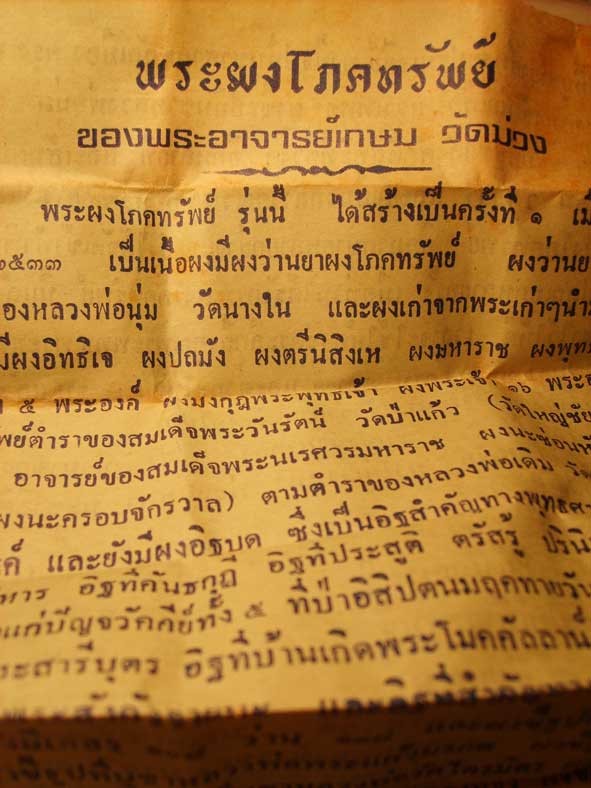 พระผงโภคทรัพย์
ของพระอาจารย์เกษม วัดม่วง
พระผงโภคทรัพย์ รุ่นนี้ ได้สร้างเป็นครั้งที่ ๑ เมื
๒๕๓๓ เป็นเนื้อผงมีผงว่านยาผงโภคทรัพย์ ผงว่านย
องหลวงพ่อนุ่ม วัดนางใน และผงเก่าจากพระเก่าๆนำม
มีผงอิทธิเจ ผงปถมัง ผงตรีนิสิงเห ผงมหาราช ผงพุทธ
๕ พระองค์ ผงมงกุฎพระพุทธเจ้า ผงพระเจ้า ๑๖ พระอ
พย์ตำราของสมเด็จพระวันรัตน์ วัดป่าแก้ว (วัดใหญ่ชัย
อาจารย์ของสมเด็จพระนเรศวรมหาราช ผงนะซ่อนห
ผงนะครอบจักรวาล) ตามตำราของหลวงพ่อเดิม วัด
ค์ และยังมีผงอิฐบด ซึ่งเป็นอิฐสำคัญทางพุทธศา
หาร อิฐที่คันธกุฎี อิฐที่ประสูติ ตรัสรู้ ปรินิ
แก่ปัญจวัคคีย์ทั้ง ๕ ที่ป่าอิสิปตนมฤคทายวัน
ะสารีบุตร อิฐที่บ้านเกิดพระโมคคัลลาน์